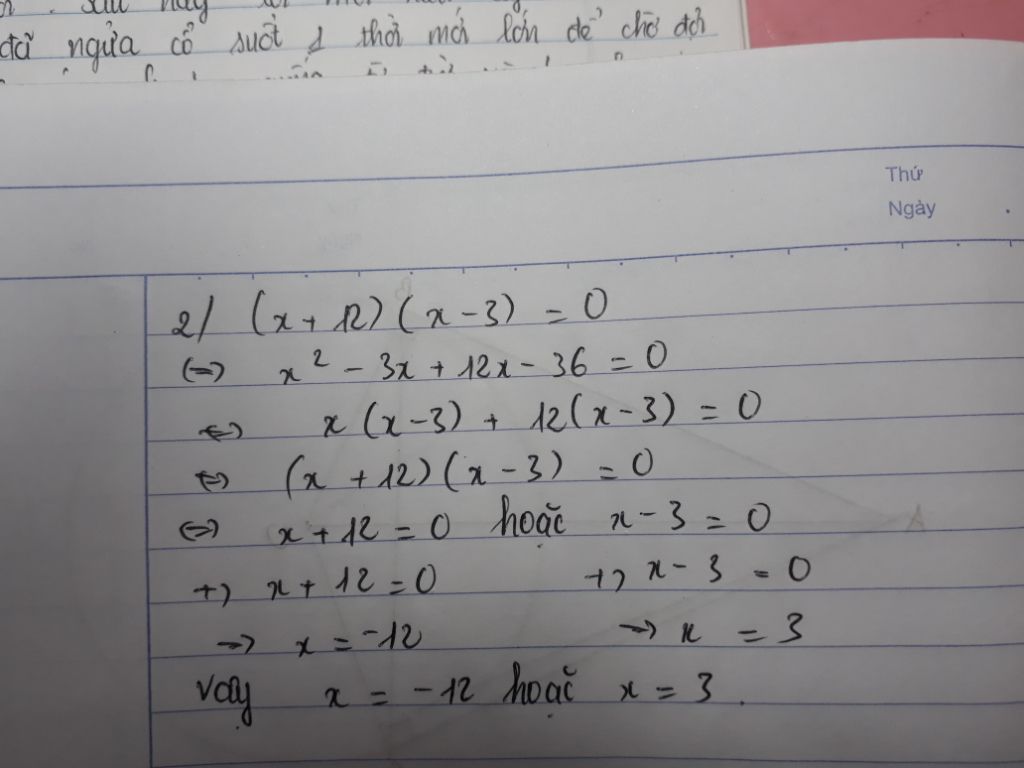 sau này
đã ngửa cổ suốt 1 thời mới lớn để chờ đợi
Thứ
Ngày
2/ (x + 12)(x - 3) = 0
(=> x² - 3x + 12x - 36 = 0
<=> x(x - 3) + 12(x - 3) = 0
<=> (x + 12)(x - 3) = 0
<=> x + 12 = 0 hoặc x - 3 = 0
+) x + 12 = 0 +) x - 3 = 0
-> x = -12 -> x = 3
Vậy x = -12 hoặc x = 3.
A